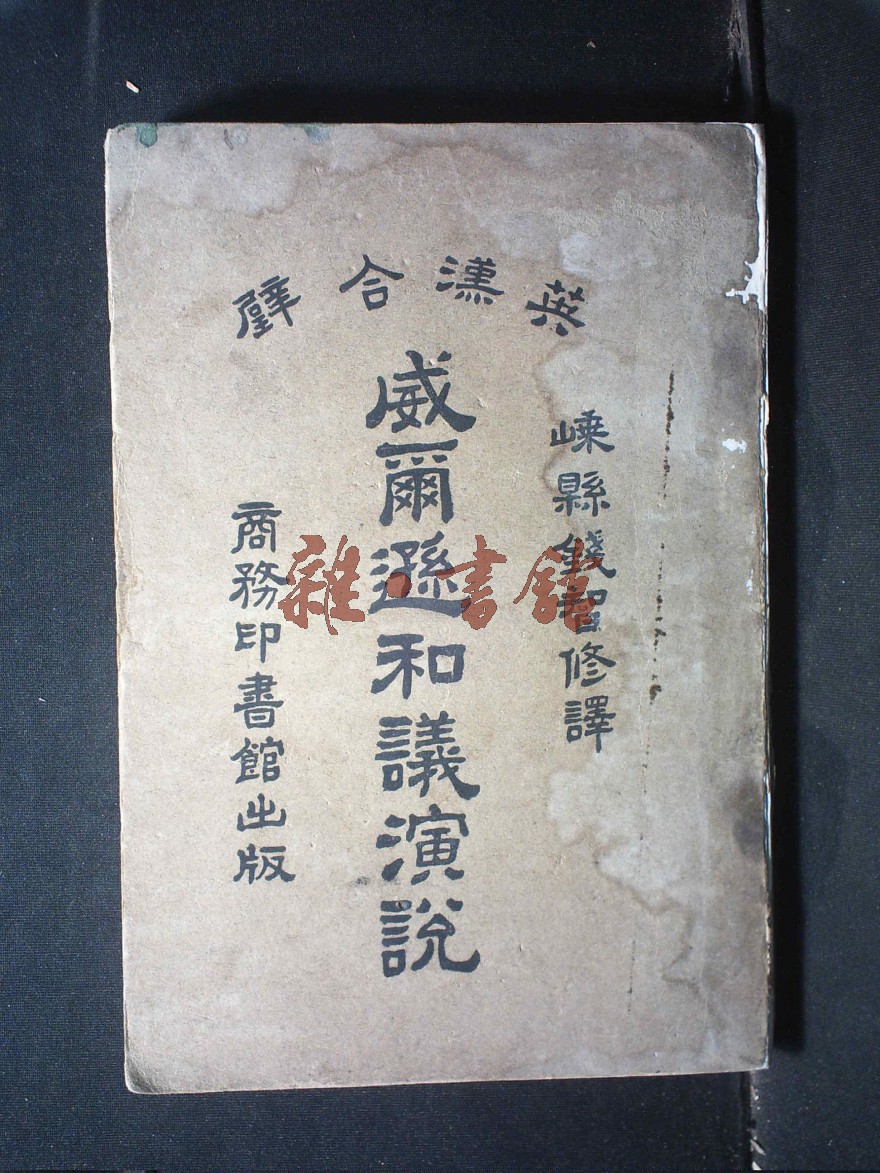 英漢合璧
嵊縣錢智修譯
威爾遜和議演說
商務印書館出版
雜·書館